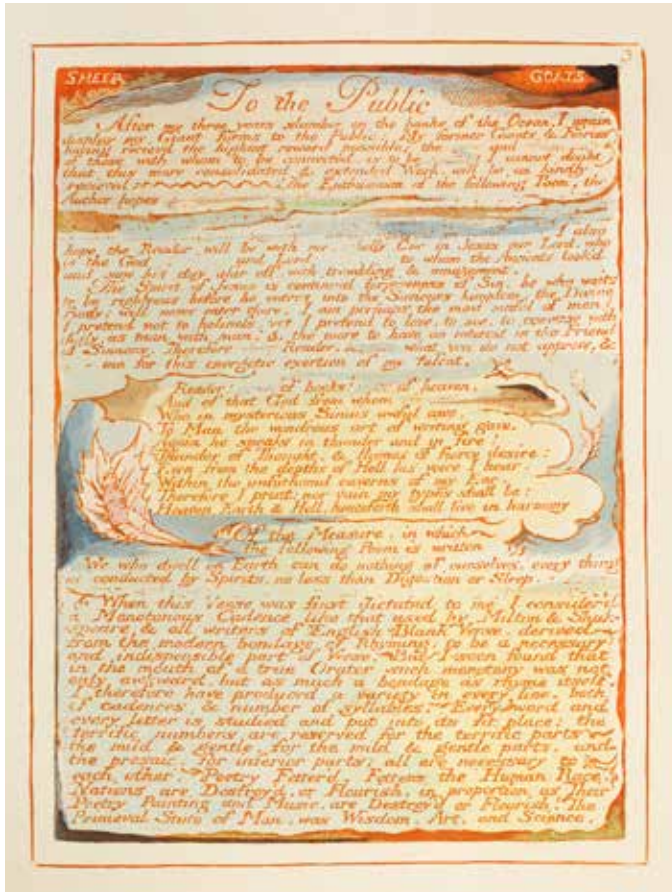 3
SHEEP GOATS
To the Public
After my three years slumber on the banks of the Ocean, I again
display my Giant forms to the Public: My former Giants & Fairies
having reciev'd the highest reward possible: the and
of those with whom to be connected, is to be I cannot doubt
that this more consolidated & extended Work, will be as kindly
recieved The Enthusiasm of the following Poem, the
Author hopes
I also
hope the Reader will be with me, wholly One in Jesus our Lord, who
is the God and Lord to whom the Ancients look'd
and saw his day afar off, with trembling & amazement.
The Spirit of Jesus is continual forgiveness of Sin: he who waits
to be righteous before he enters into the Saviours kingdom, the Divine
Body; will never enter there. I am perhaps the most sinful of men!
I pretend not to holiness! yet I pretend to love, to see, to converse with
daily, as man with man, & the more to have an interest in the Friend
of Sinners. Therefore Reader, what you do not approve, &
me for this energetic exertion of my talent.
Reader! of books! of heaven,
And of that God from whom
Who in mysterious Sinais awful cave
To Man the wond'rous art of writing gave,
Again he speaks in thunder and in fire!
Thunder of Thought, & flames of fierce desire:
Even from the depths of Hell his voice I hear,
Within the unfathomd caverns of my Ear.
Therefore I print; nor vain my types shall be:
Heaven, Earth & Hell, henceforth shall live in harmony
Of the Measure, in which
the following Poem is written
We who dwell on Earth can do nothing of ourselves, every thing
is conducted by Spirits, no less than Digestion or Sleep.
When this Verse was first dictated to me I consider'd
a Monotonous Cadence like that used by Milton & Shak-
speare & all writers of English Blank Verse, derived
from the modern bondage of Rhyming; to be a necessary
and indispensible part of Verse. But I soon found that
in the mouth of a true Orator such monotony was not
only awkward, but as much a bondage as rhyme itself.
I therefore have produced a variety in every line, both
of cadences & number of syllables. Every word and
every letter is studied and put into its fit place: the
terrific numbers are reserved for the terrific parts
the mild & gentle, for the mild & gentle parts, and
the prosaic, for inferior parts: all are necessary to
each other. Poetry Fetter'd, Fetters the Human Race.
Nations are Destroy'd, or Flourish, in proportion as Their
Poetry Painting and Music, are Destroy'd or Flourish! The
Primeval State of Man, was Wisdom, Art, and Science.